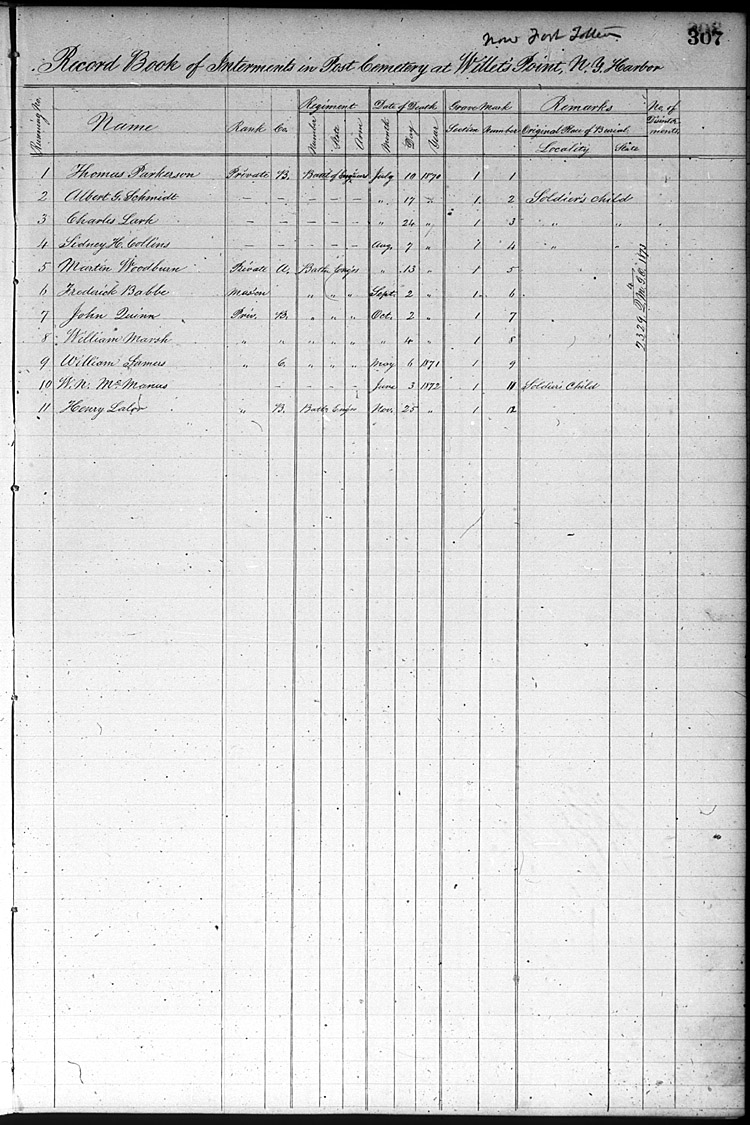 Now Fort Totten
307
Record Book of Interments in Post Cemetery at Willet's Point, N.Y. Harbor
Running No. Name Rank Co. Regiment Date of Death Grave Mark Remarks No. of Disinterments
Number State Arm Month Day Year Section Number Original Place of Burial
Locality State
1 Thomas Parkerson Private B. Batt of Engineers July 10 1870 1 1
2 Albert G. Schmidt — — — — — " 17 " 1. 2 Soldier's child
3 Charles Lark — — — — — " 24 " 1 3 " "
4 Sidney H. Collins — — — — — Aug. 7 " 1 4 " "
5 Martin Woodburn Private A. Battn Eng'rs " 13 " 1 5
6 Frederick Babbe " " " " Sept. 2 " 1 6
7 John Quinn Priv. B. " " " Oct. 2 " 1 7
8 William Marsh " " " " " " 4 " 1 8
9 William Lamers " C. " " " May 6 1871 1 9
10 W. N. McManus — — — — June 3 1872 1 11 Soldier's Child
11 Henry Lalor " B. Battn Eng'rs Nov. 25 " 1 12
2329 Q.M.G.O. 1873